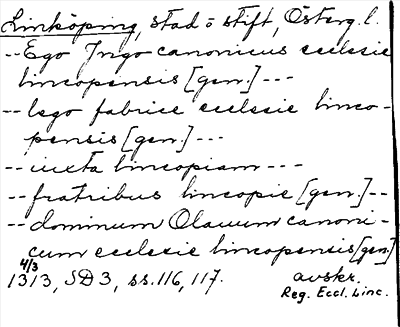 Linköping, stad o stift, Österg. l.
-- Ego Ingo canonicus ecclesie
lincopensis [gen.] ---
-- lego fabrice ecclesie linco-
pensis [gen.] ---
-- iuxta lincopiam ---
-- fratribus lincopie [gen.] --
-- dominum Olauum canoni-
cum ecclesie lincopensis [gen.]
4/3
1313, SD 3, ss. 116, 117. avskr.
Reg. Eccl. Linc.